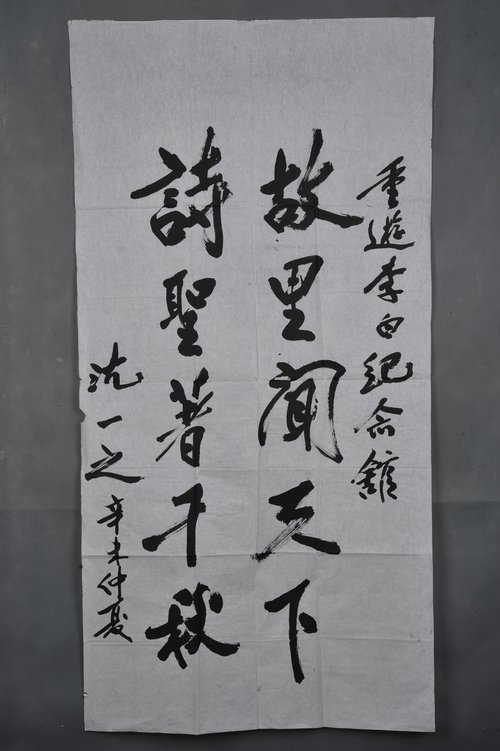 重遊李白纪念館
故里闻天下
詩聖著千秋
沈一之 辛未仲夏